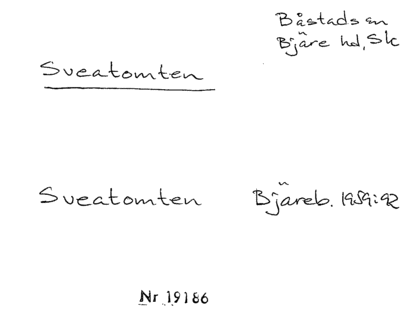 Båstads sn
Bjäre hd, Sk
Sveatomten
Sveatomten Bjäreb. 1959:92
Nr 19186